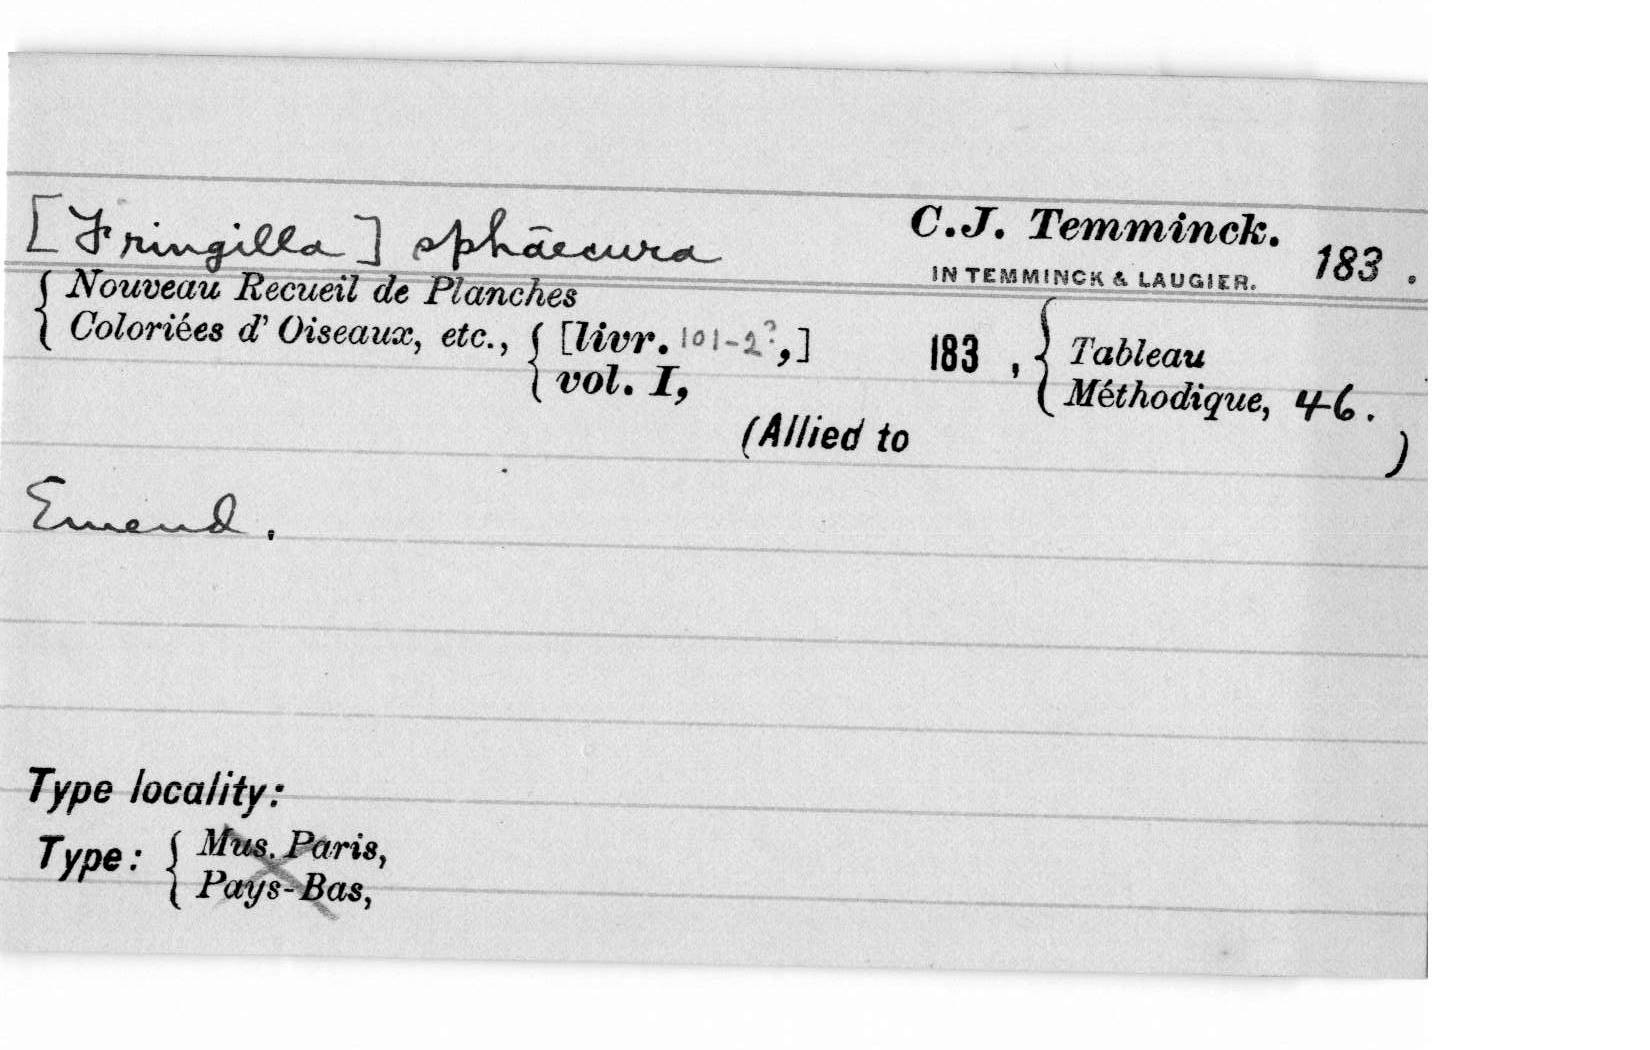 [Fringilla] sphāecura C.J. Temminck.
IN TEMMINCK & LAUGIER. 183 .
Nouveau Recueil de Planches
Coloriées d' Oiseaux, etc., [livr. 101-2?,] 183 , Tableau
vol. I, Méthodique, 46.
(Allied to )
Emend.
Type locality:
Type: Mus. Paris,
Pays-Bas,